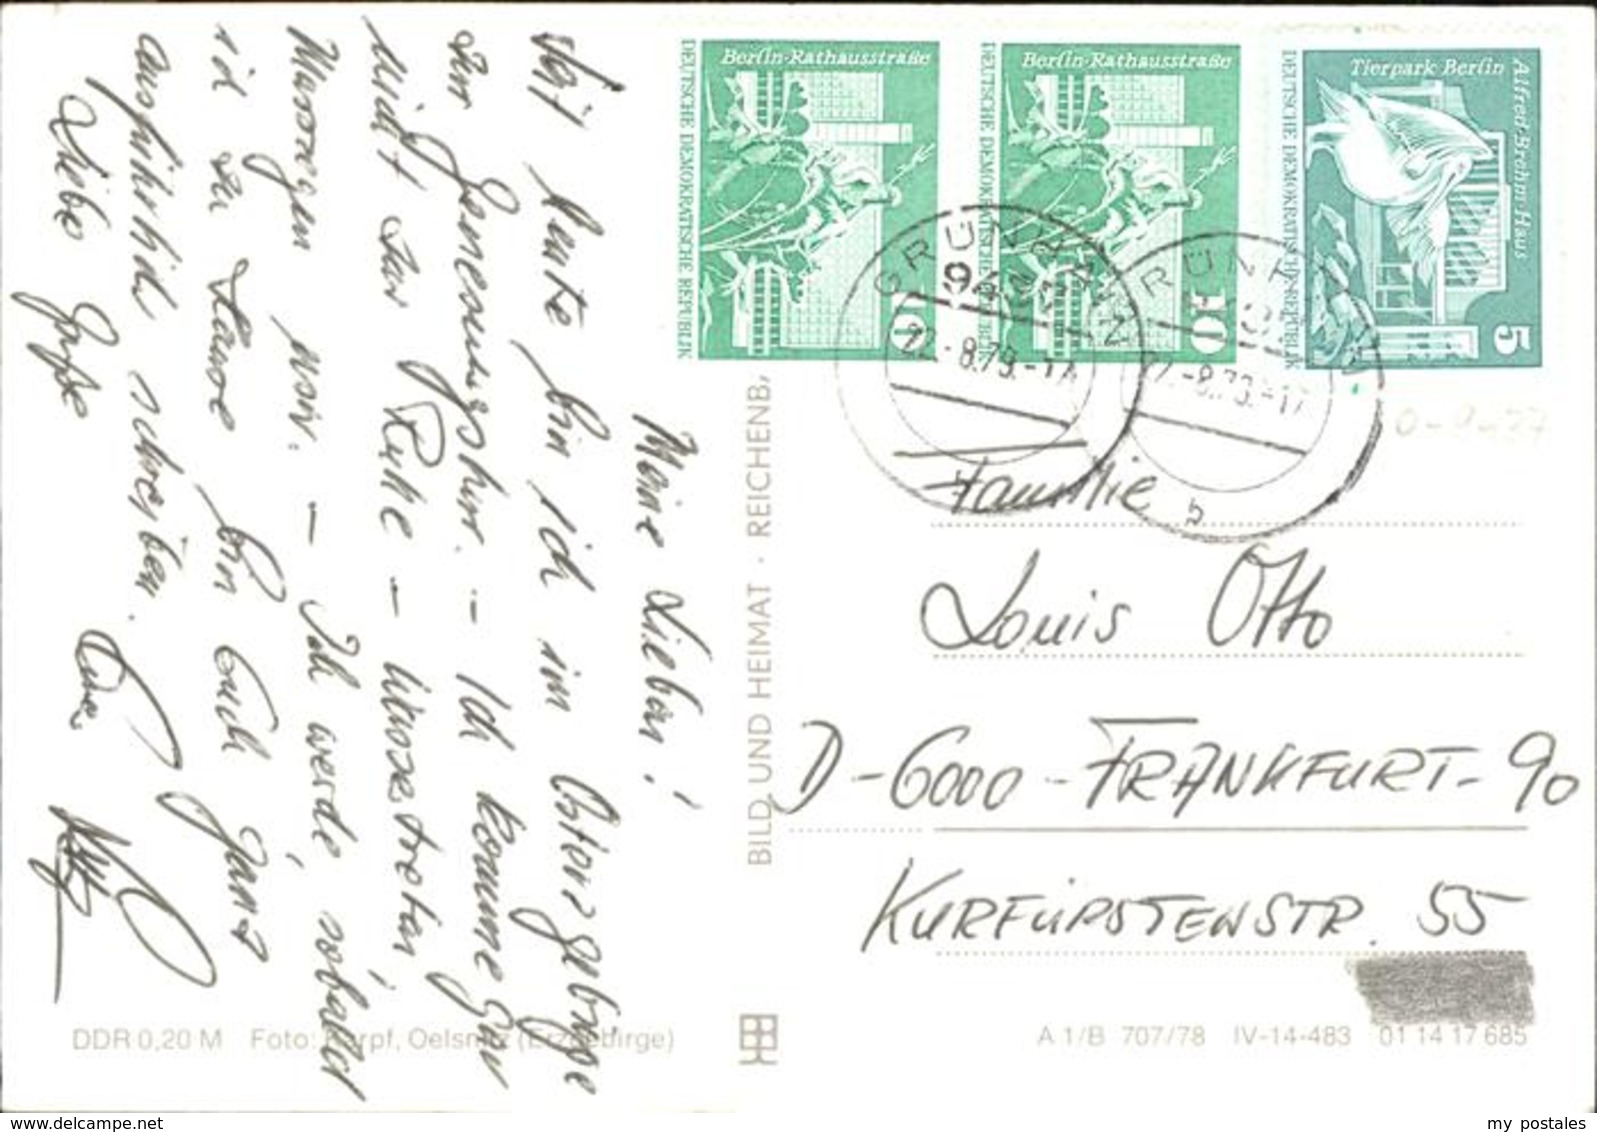 Berlin-Rathausstraße
DEUTSCHE DEMOKRATISCHE REPUBLIK
10
Berlin-Rathausstraße
DEUTSCHE DEMOKRATISCHE
10
Tierpark Berlin
Alfred-Brehm-Haus
DEUTSCHE DEMOKRATISCHE REPUBLIK
5
GRÜNHAIN
22.-8.79.-17
-8.79.-17
b
Meine Lieben!
Seit heute bin ich im Osterzgebirge
zur Genesungskur. - Ich komme gar
nicht zur Ruhe - Wassertreten,
Massagen usw. - Ich werde, sobald
ich zu Hause bin Euch ganz
ausführlich schreiben.
Liebe Grüße
Familie
Louis Otto
D-6000-FRANKFURT-90
KURFÜRSTENSTR. 55
BILD UND HEIMAT · REICHENB,
DDR 0,20 M Foto: Oelsnitz (Erzgebirge)
A 1/B 707/78 IV-14-483 01 14 17 685
my postales